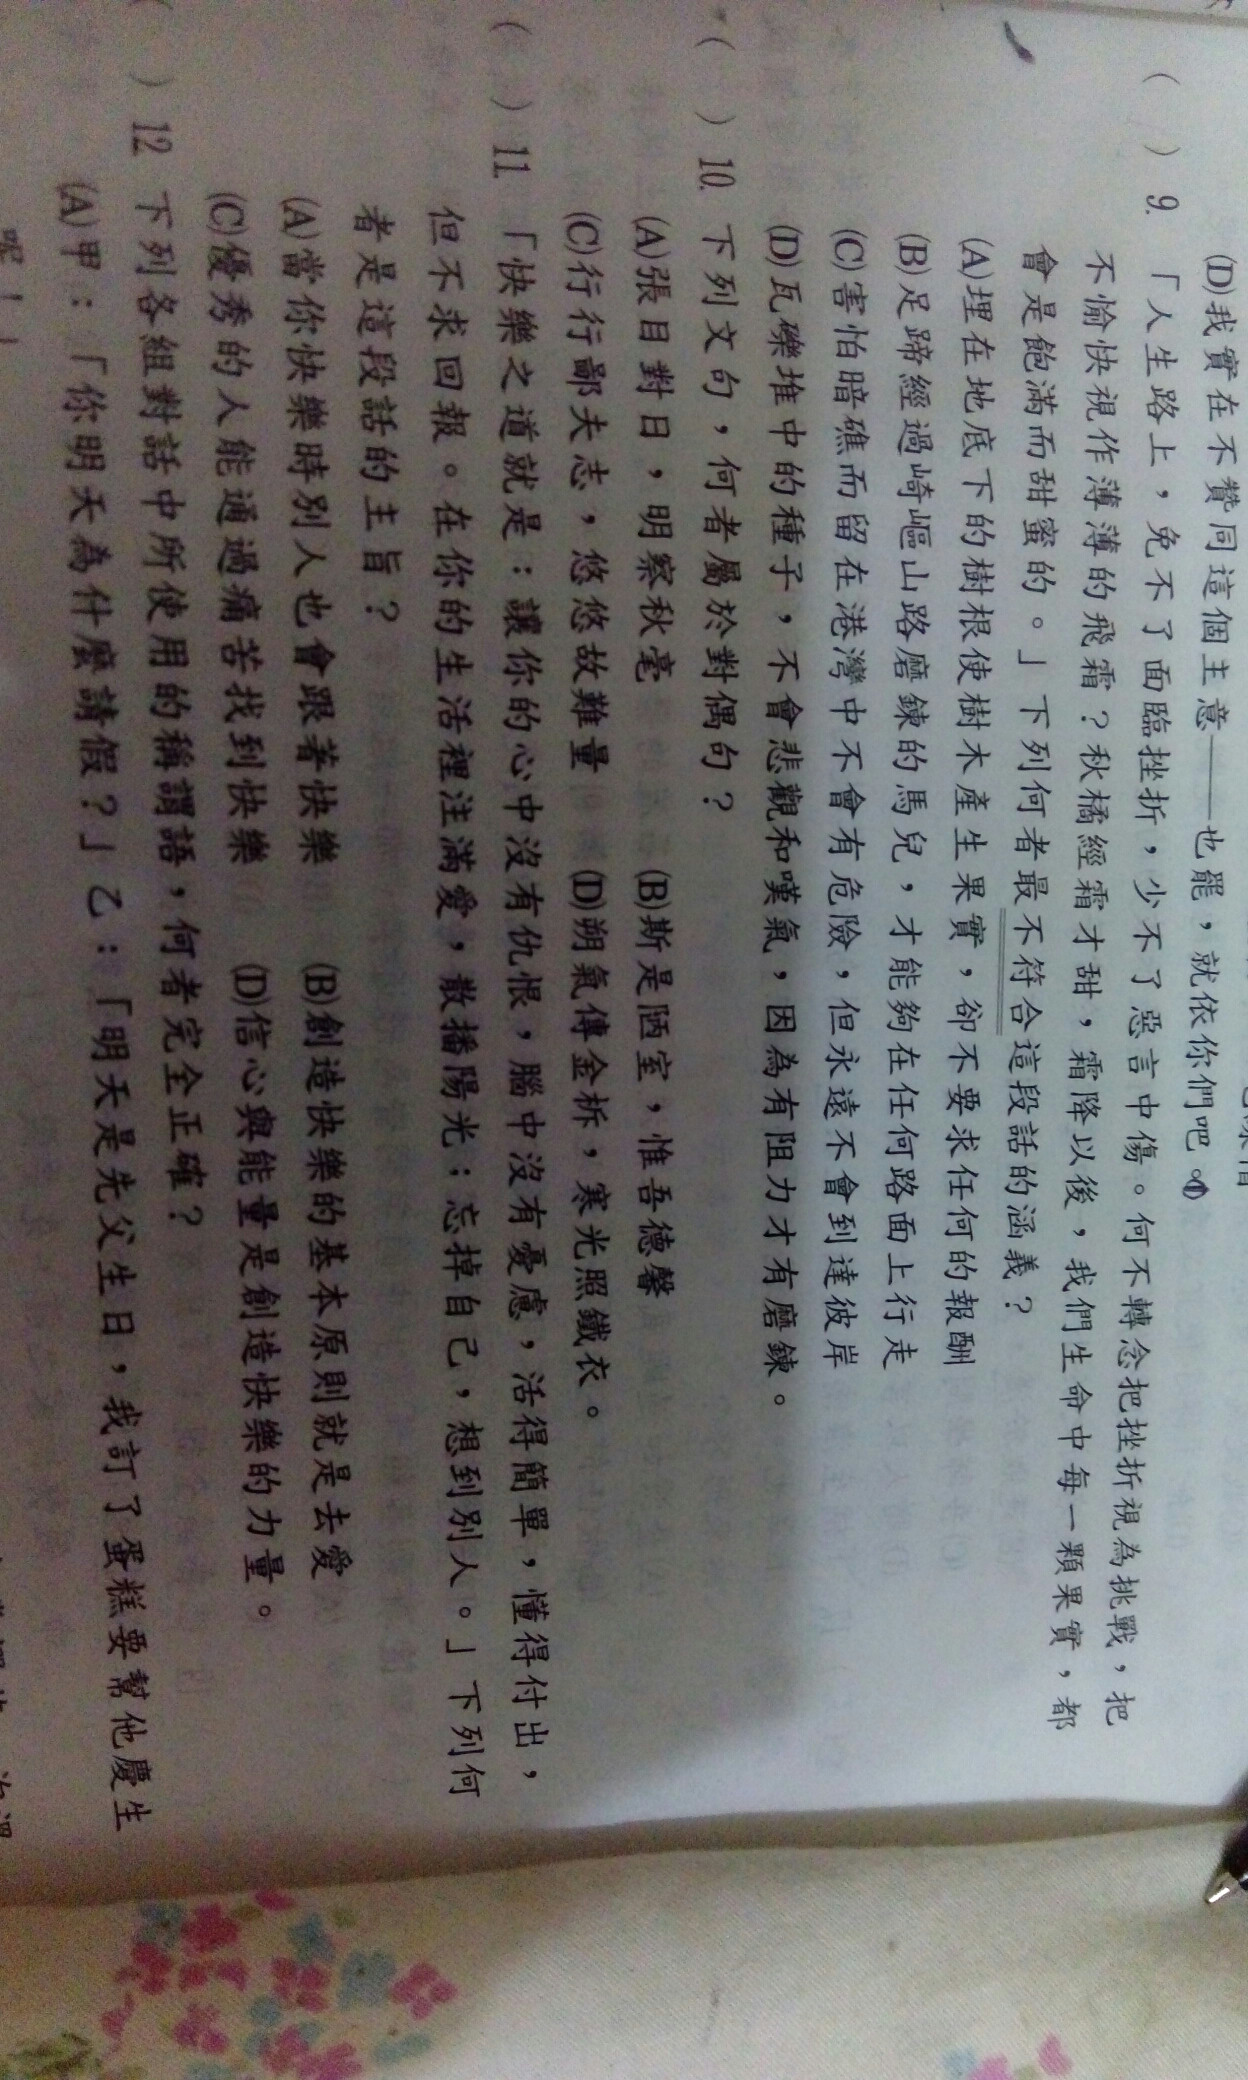 (D)我實在不贊同這個主意——也罷，就依你們吧。
( ) 9. 「人生路上，免不了面臨挫折，少不了惡言中傷。何不轉念把挫折視為挑戰，把
不愉快視作薄薄的飛霜？秋橘經霜才甜，霜降以後，我們生命中每一顆果實，都
會是飽滿而甜蜜的。」下列何者最不符合這段話的涵義？
(A)埋在地底下的樹根使樹木產生果實，卻不要求任何的報酬
(B)足蹄經過崎嶇山路磨鍊的馬兒，才能夠在任何路面上行走
(C)害怕暗礁而留在港灣中不會有危險，但永遠不會到達彼岸
(D)瓦礫堆中的種子，不會悲觀和嘆氣，因為有阻力才有磨鍊。
( ) 10. 下列文句，何者屬於對偶句？
(A)張目對日，明察秋毫 (B)斯是陋室，惟吾德馨
(C)行行鄙夫志，悠悠故難量 (D)朔氣傳金柝，寒光照鐵衣。
( ) 11. 「快樂之道就是：讓你的心中沒有仇恨，腦中沒有憂慮，活得簡單，懂得付出，
但不求回報。在你的生活裡注滿愛，散播陽光；忘掉自己，想到別人。」下列何
者是這段話的主旨？
(A)當你快樂時別人也會跟著快樂 (B)創造快樂的基本原則就是去愛
(C)優秀的人能通過痛苦找到快樂 (D)信心與能量是創造快樂的力量。
( ) 12 下列各組對話中所使用的稱謂語，何者完全正確？
(A)甲：「你明天為什麼請假？」乙：「明天是先父生日，我訂了蛋糕要幫他慶生
呢！」